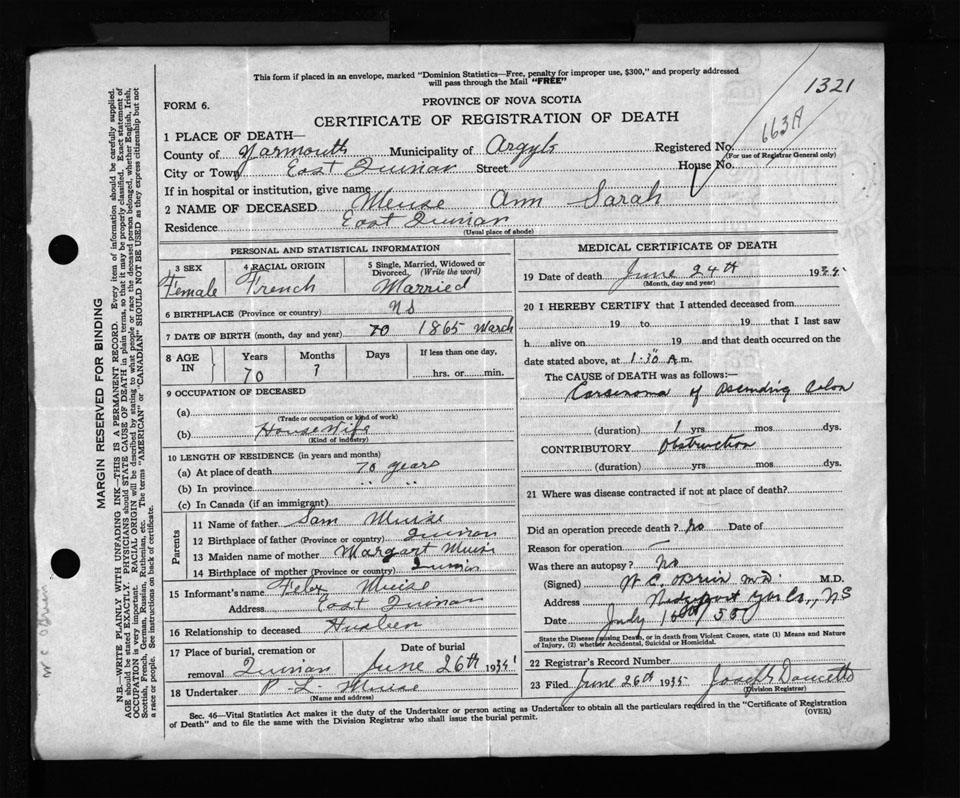 This form if placed in an envelope, marked "Dominion Statistics—Free, penalty for improper use, $300," and properly addressed
will pass through the Mail "FREE"
1321
FORM 6.
PROVINCE OF NOVA SCOTIA
CERTIFICATE OF REGISTRATION OF DEATH
663A
1 PLACE OF DEATH—
Registered No.
(For use of Registrar General only)
County of Yarmouth Municipality of Argyle
City or Town East Quinan Street House No.
If in hospital or institution, give name
2 NAME OF DECEASED Meuse Ann Sarah
Residence East Quinan
(Usual place of abode)
PERSONAL AND STATISTICAL INFORMATION
3 SEX 4 RACIAL ORIGIN 5 Single, Married, Widowed or Divorced, (Write the word)
Female French Married
6 BIRTHPLACE (Province or country) NS
7 DATE OF BIRTH (month, day and year) 70 1865 March
8 AGE IN Years Months Days If less than one day,
70 3 hrs. or min.
9 OCCUPATION OF DECEASED
(a)
(Trade or occupation or kind of work)
(b) Housewife
(Kind of industry)
10 LENGTH OF RESIDENCE (in years and months)
(a) At place of death 70 years
(b) In province " "
(c) In Canada (if an immigrant)
Parents
11 Name of father Sam Muise
12 Birthplace of father (Province or country) Quinan
13 Maiden name of mother Margart Muise
14 Birthplace of mother (Province or country) Quinan
15 Informant's name Felex Muise
Address East Quinan
16 Relationship to deceased Husben
17 Place of burial, cremation or removal Date of burial
Quinan June 26th 1935
18 Undertaker P L Muise
(Name and address)
MEDICAL CERTIFICATE OF DEATH
19 Date of death June 24th 1935
(Month, day and year)
20 I HEREBY CERTIFY that I attended deceased from
19 to 19 that I last saw
h alive on 19 and that death occurred on the
date stated above, at 1.30 A.m.
The CAUSE of DEATH was as follows:—
Carsinoma of Decending Colon
(duration) 1 yrs. mos. dys.
CONTRIBUTORY Obstruction
(duration) yrs. mos. dys.
21 Where was disease contracted if not at place of death?
Did an operation precede death? no Date of
Reason for operation —
Was there an autopsy? No
(Signed) W C O'Brien M.D. M.D.
Address Wedgeport Yar Co., NS
July 16th/35
State the Disease causing Death, or in death from Violent Causes, state (1) Means and Nature
of Injury, (2) whether Accidental, Suicidal or Homicidal.
22 Registrar's Record Number
23 Filed June 26th 1935 Joseph Doucette
(Division Registrar)
Sec. 46—Vital Statistics Act makes it the duty of the Undertaker or person acting as Undertaker to obtain all the particulars required in the "Certificate of Registration
of Death" and to file the same with the Division Registrar who shall issue the burial permit.
(OVER)
MARGIN RESERVED FOR BINDING
N.B.—WRITE PLAINLY WITH UNFADING INK—THIS IS A PERMANENT RECORD. Every item of information should be carefully supplied.
AGE should be stated EXACTLY. PHYSICIANS should STATE CAUSE OF DEATH in plain terms, so that it may be properly classified. Exact statement of
OCCUPATION is very important. RACIAL ORIGIN will be described by stating to what people or race the deceased person belonged, whether English, Irish,
Scottish, French, German, Russian, Ruthenian, etc. The terms "AMERICAN" or "CANADIAN" SHOULD NOT BE USED as they express citizenship but not
a race or people. See instructions on back of certificate.
W C O'Brien